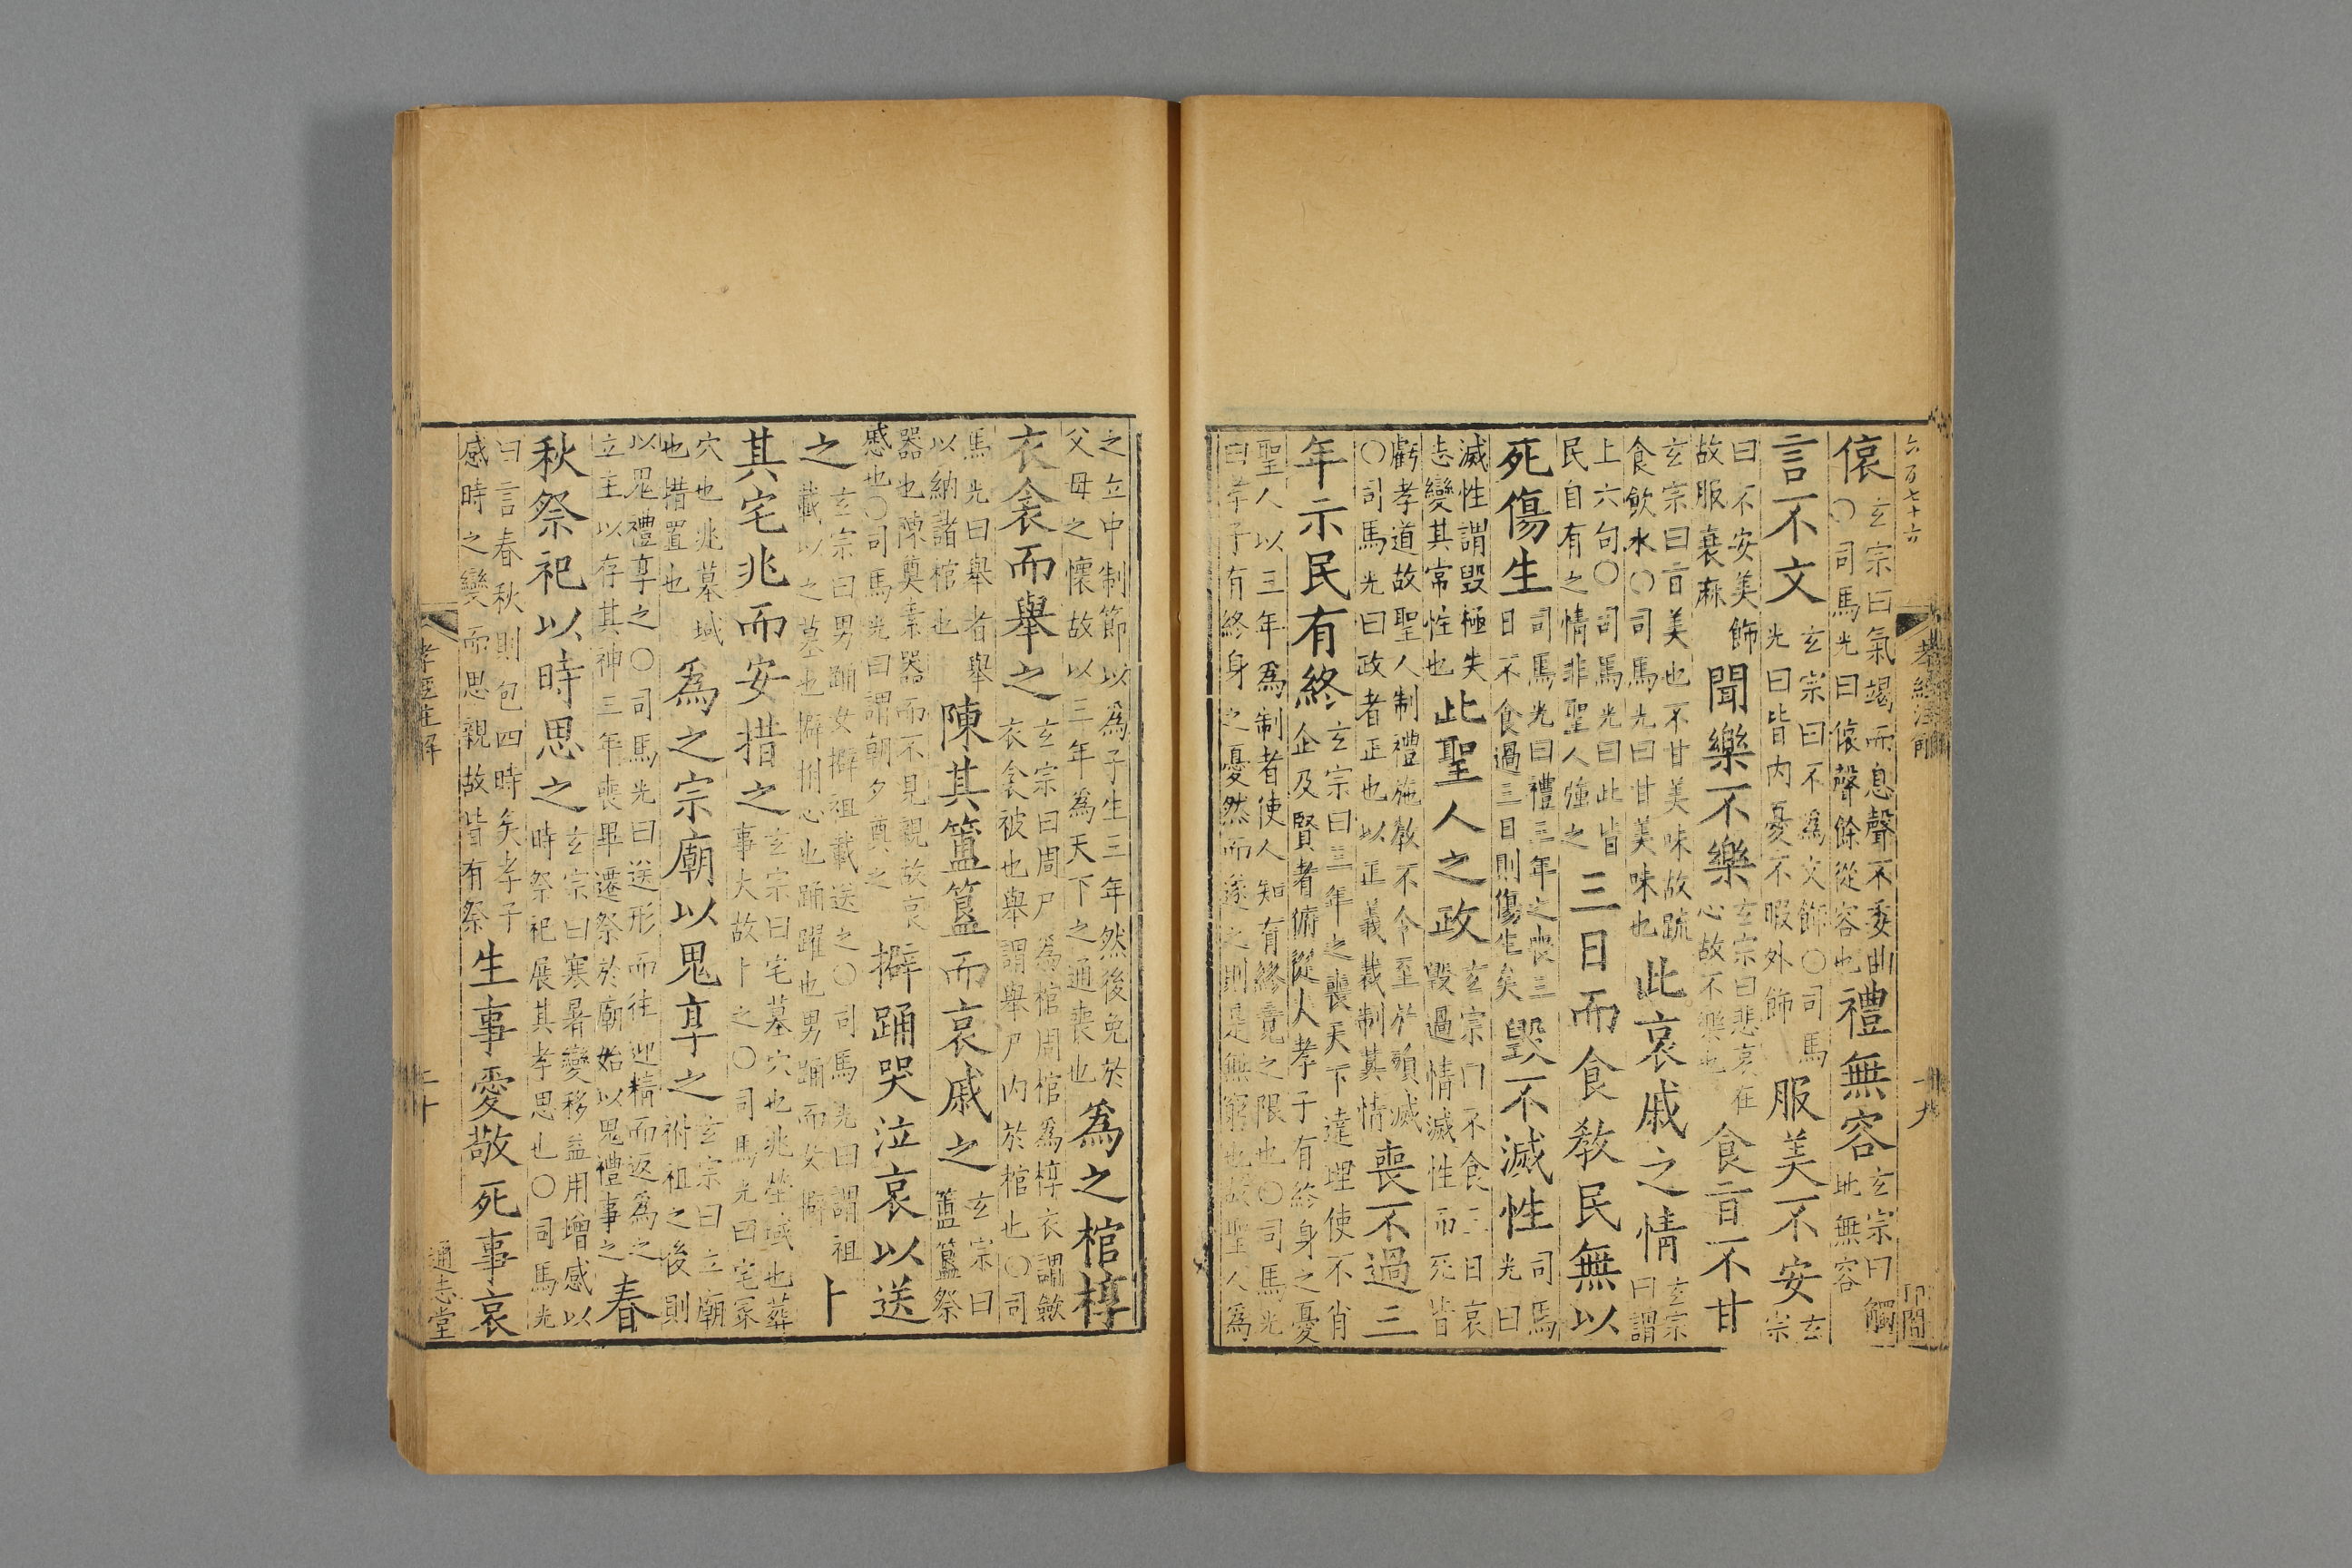 六百七十六
孝經注解
十九
偯玄宗曰氣竭而息聲不委曲〇司馬光曰偯聲餘從容也禮無容玄宗曰觸地無容
言不文玄宗曰不為文飾〇司馬光曰皆内憂不暇外飾服美不安玄宗
曰不安美飾故服衰麻聞樂不樂玄宗曰悲哀在心故不樂也食旨不甘
玄宗曰旨美也不甘美味故疏食飲水〇司馬光曰甘美味也此哀戚之情玄宗曰謂
上六句〇司馬光曰此皆民自有之情非聖人強之三日而食教民無以
死傷生司馬光曰禮三年之喪三日不食過三日則傷生矣毀不滅性司馬光曰
滅性謂毀極失志變其常性也此聖人之政玄宗曰不食三日哀毀過情滅性而死皆
虧孝道故聖人制禮施教不令至於頭滅〇司馬光曰政者正也以正義裁制其情喪不過三
年示民有終玄宗曰三年之喪天下達理使不肖企及賢者俯從人孝子有終身之憂
聖人以三年為制者使人知有終竟之限也〇司馬光曰孝子有終身之憂然而遂之則是無窮也故聖人為
之立中制節以為子生三年然後免於父母之懷故以三年為天下之通喪也為之棺椁
衣衾而舉之玄宗曰周尸為棺周棺為椁衣謂斂衣衾被也舉謂舉尸内於棺也〇司
馬光曰舉者舉以納諸棺也陳其簠簋而哀慼之玄宗曰簠簋祭
器也陳奠素器而不見親故哀慼也〇司馬光曰謂朝夕奠之擗踊哭泣哀以送
之玄宗曰男踊女擗祖載送之〇司馬光曰謂祖載以之墓也擗拊心也踊躍也男踊而女擗卜
其宅兆而安措之玄宗曰宅墓穴也兆塋域也葬事大故卜之〇司馬光曰宅冢
穴也兆墓域也措置也為之宗廟以鬼享之玄宗曰立廟祔祖之後則
以鬼禮享之〇司馬光曰送形而往迎精而返為之立主以存其神三年喪畢遷祭於廟始以鬼禮事之春
秋祭祀以時思之玄宗曰寒暑變移益用增感以時祭祀展其孝思也〇司馬光
曰言春秋則包四時矣孝子感時之變而思親故皆有祭生事愛敬死事哀
孝經注解
二十
通志堂